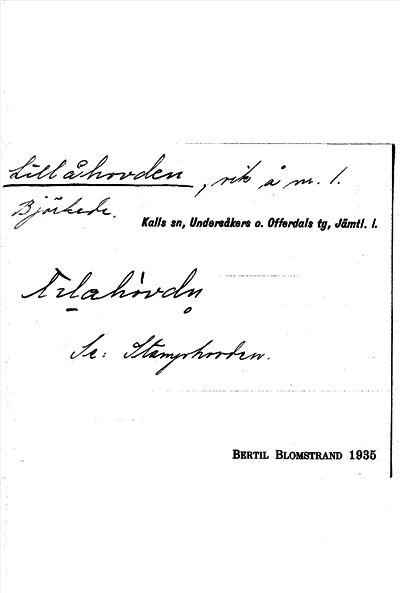 Lillåhovden, vik å m. l.
Björkede.
Kalls sn, Undersåkers o. Offerdals tg, Jämtl. l.
Se: Stamphovden.
BERTIL BLOMSTRAND 1935